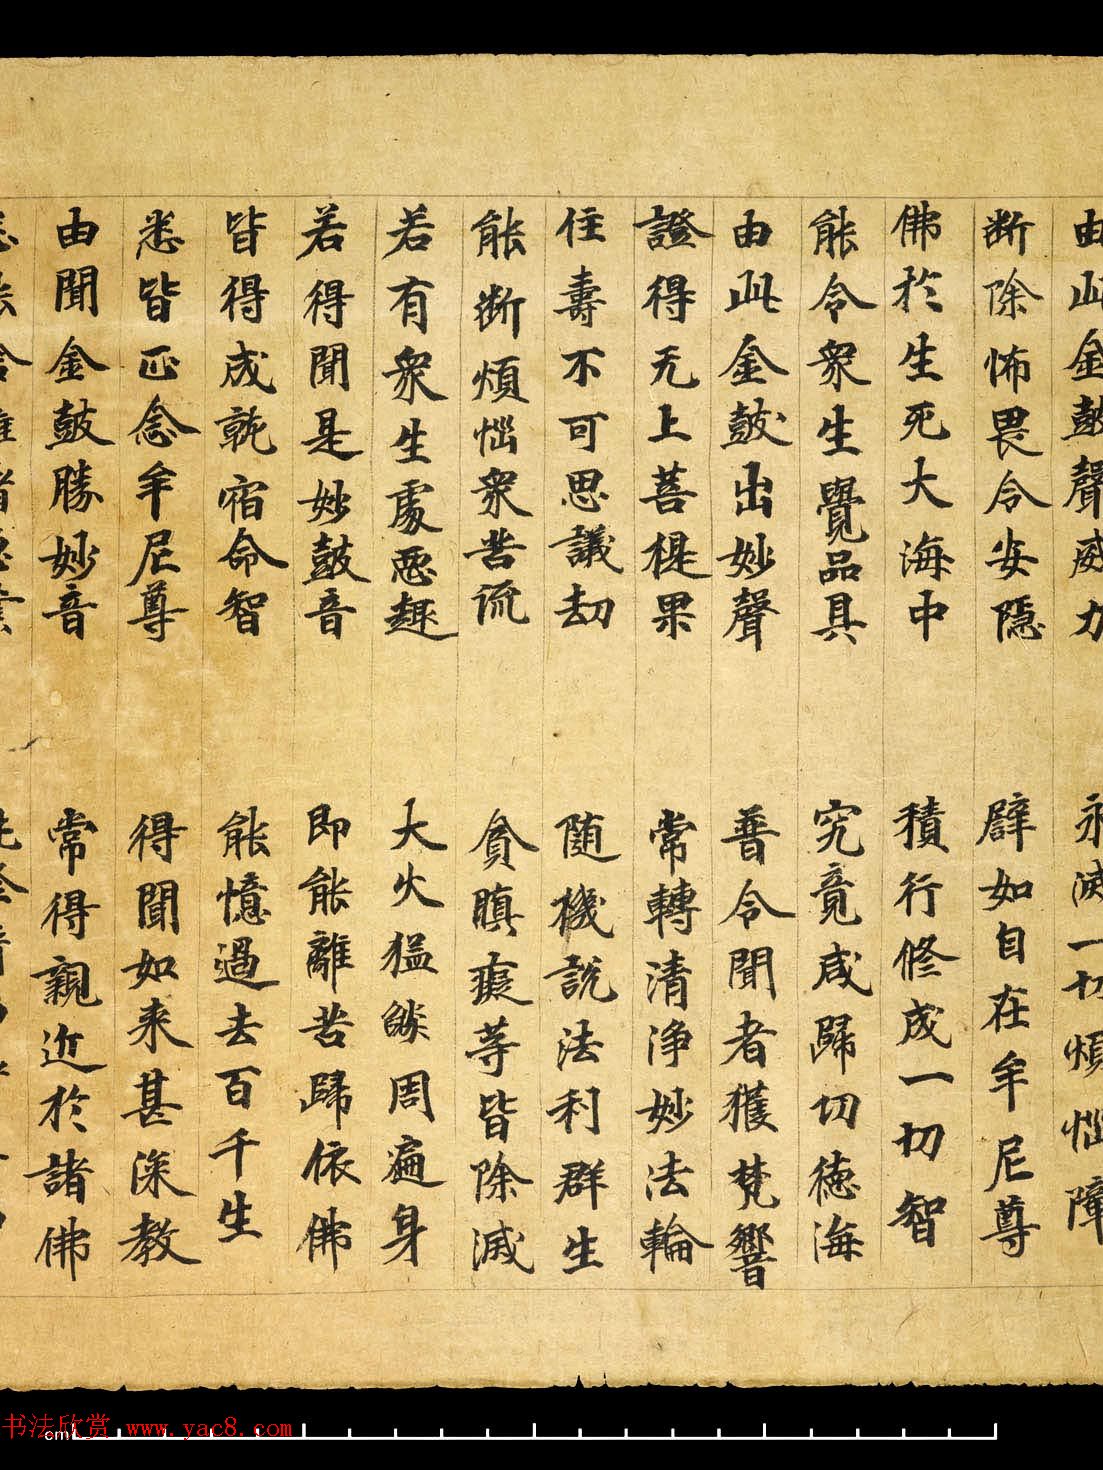 由此金鼓聲威力 永滅一切煩惱障
断除怖畏令安隱 譬如自在牟尼尊
佛於生死大海中 積行修成一切智
能令衆生覺品具 究竟咸歸切德海
由此金鼓出妙聲 普令聞者獲梵響
證得无上菩提果 常轉清淨妙法輪
住壽不可思議劫 随機說法利群生
能断煩惱衆苦流 貪瞋癡等皆除滅
若有衆生處惡趣 大火猛燄周遍身
若得聞是妙鼓音 即能離苦歸依佛
皆得成就宿命智 能憶過去百千生
悉皆正念牟尼尊 得聞如来甚深教
由聞金鼓勝妙音 常得親近於諸佛
書法欣赏 www.yac8.com
cm